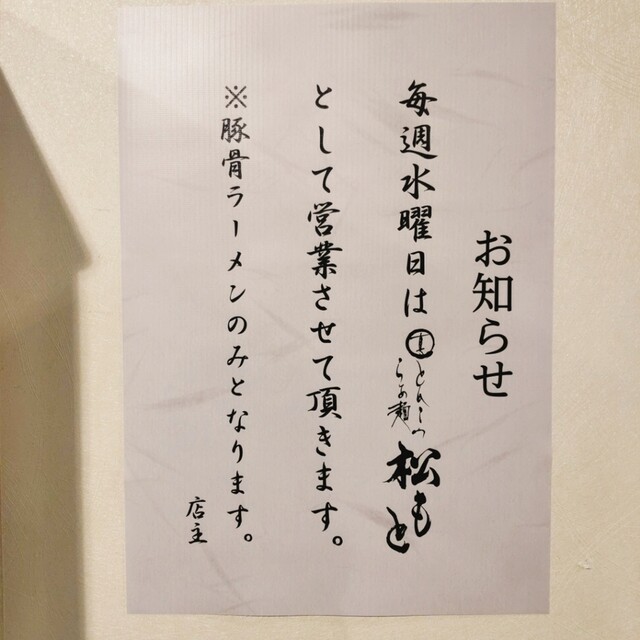 お知らせ
毎週水曜日は
とんこつ
らぁ麺
松もと
として営業させて頂きます。
※豚骨ラーメンのみとなります。
店主